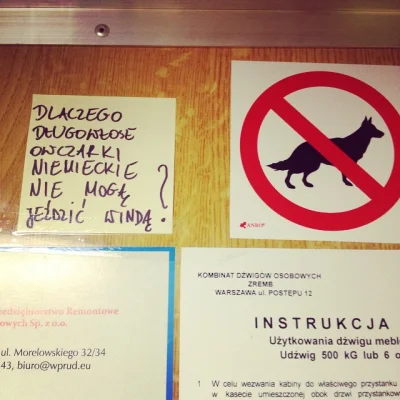 DLACZEGO
DŁUGOWŁOSE
OWCZARKI
NIEMIECKIE
NIE MOGĄ
JEŹDZIĆ WINDĄ?
Remontowe
owych Sp. z o.o.
ul. Morelowskiego 32/34
43, biuro@wprud.eu
KOMBINAT DŹWIGÓW OSOBOWYCH
ZREMB
WARSZAWA ul. POSTĘPU 12
INSTRUKCJA
Użytkowania dźwigu meble
Udźwig 500 kG lub 6 o
1 W celu wezwania kabiny do właściwego przystanku
w kasecie umieszczonej obok drzwi przystanko